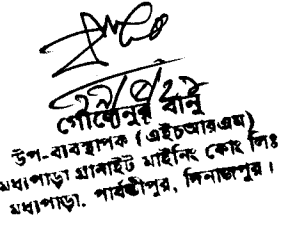 ২৭/৫/২১
গোলেনুর বানু
উপ-ব্যবস্থাপক (এইচআরএম)
মধ্যপাড়া গ্রানাইট মাইনিং কোং লিঃ
মধ্যপাড়া, পার্বতীপুর, দিনাজপুর।